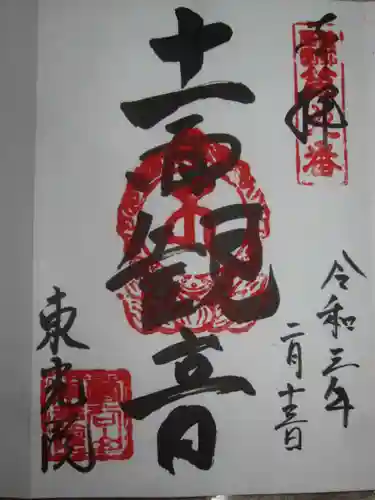 奉拝
令和三年
二月十三日
十一面観音
東光院